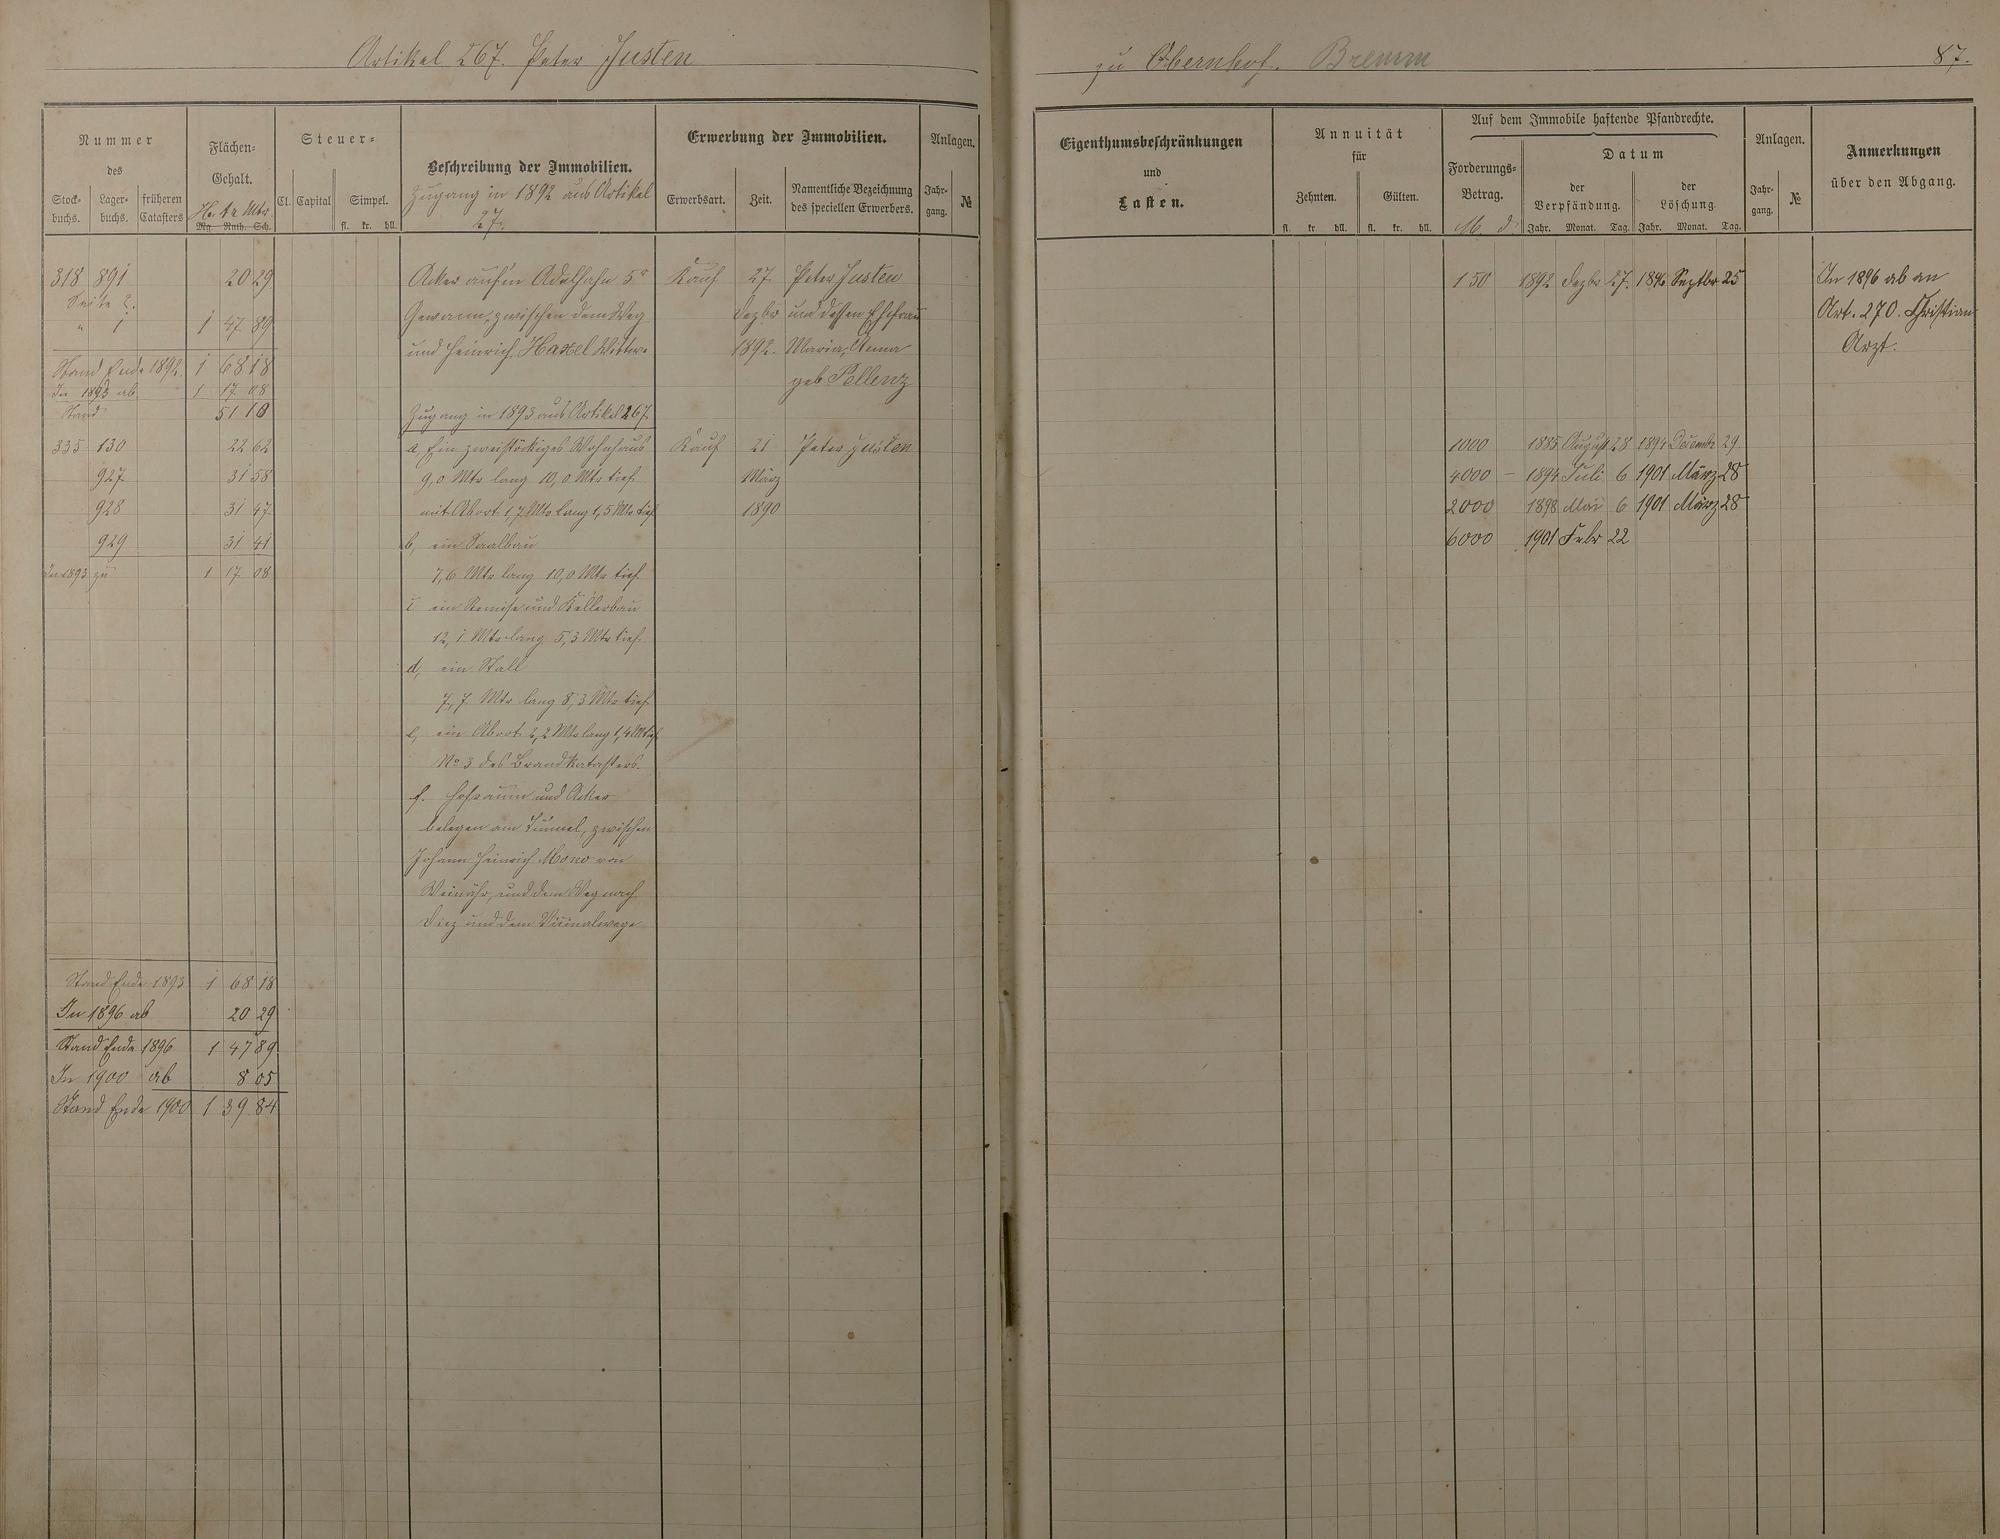 Artikel 267. Peter Justen
zu Obernhof. Bremm
87.
Nummer
des
Stock-buchs. Lager-buchs. früheren Catasters
Flächen-
Gehalt.
H. Ar Mtr
Mg Ruth. Sch.
Steuer-
Cl. Capital Simpel.
fl. kr. hll.
Beschreibung der Immobilien.
Zugang in 1892 aus Artikel
27.
Erwerbung der Immobilien.
Erwerbsart. Zeit. Namentliche Bezeichnung
des speciellen Erwerbers.
Anlagen.
Jahr-gang. №
Eigenthumsbeschränkungen
und
Lasten.
Annuität
für
Zehnten. Gülten.
fl. kr. hll. fl. kr. hll.
Auf dem Immobile haftende Pfandrechte.
Forderungs-
Betrag.
M. d
Datum
der
Verpfändung.
der
Löschung
Jahr. Monat. Tag. Jahr. Monat. Tag.
Anlagen.
Jahr-gang. №
Anmerkungen
über den Abgang.
318 891 20 29
Seite 2.
" 1 1 47 89
Stand Ende 1892 1 68 18
In 1893 ab 1 17 08
Stand 51 10
335 130 22 62
927 31 58
928 31 47
929 31 41
In 1893 zu 1 17 08
Acker auf'm Adelhahn 5r
Gewann, zwischen dem Weg
und Heinrich Haxel Wittwe
Kauf 27. Peter Justen
Dezbr und dessen Ehefrau
1892. Maria, Anna
geb. Pellenz
150 1892 Dezbr 27. 1896 Septbr 25
In 1896 ab an
Art. 270. Christian
Arzt.
Zugang in 1893 aus Artikel 267.
a, Ein zweistöckiges Wohnhaus
9,0 Mtr lang 10,0 Mtr tief
mit Abort 1,7 Mtr lang 1,5 Mtr tief
b, ein Saalbau
7,6 Mtr lang 10,0 Mtr tief
c ein Remise und Kellerbau
12,1 Mtr lang 5,3 Mtr tief.
d, ein Stall
7,7 Mtr lang 8,3 Mtr tief
e, ein Abort 2,2 Mtr lang 1,4 M tief
No 3 des Brandkatasters.
f. Hofraum und Acker
belegen am Tunnel, zwischen
Johann Heinrich Mono von
Weinähr, und dem Weg nach
Diez und dem Vicinalwege
Kauf 21 Peter Justen
März
1890
1000 1885 August 28 1894 Decembr 29
4000 – 1894 Juli 6 1901 März 28
2000 1898 Mai 6 1901 März 28
6000 1901 Febr 22
Stand Ende 1893 1 68 18
In 1896 ab 20 29
Stand Ende 1896 1 47 89
In 1900 ab 8 05
Stand Ende 1900 1 39 84